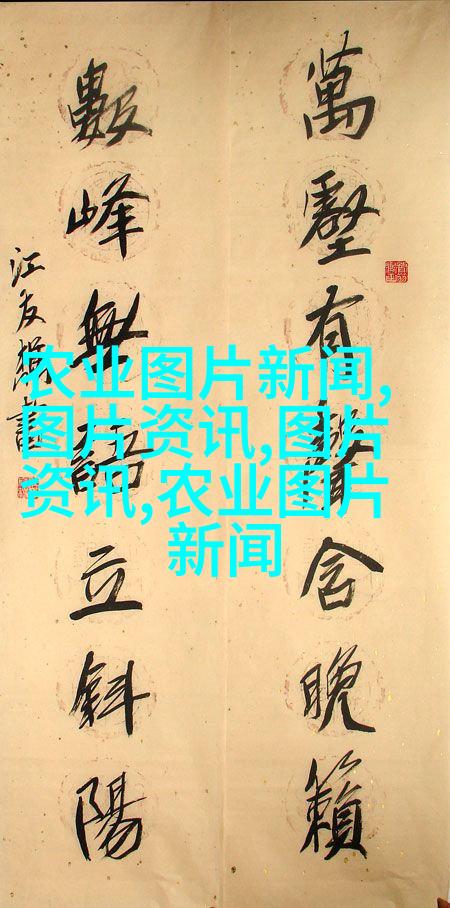 萬壑有聲含晚籟
數峰無語立斜陽
江友樵書
农业图片新闻,
图片资讯,图片
资讯,农业图片
新闻